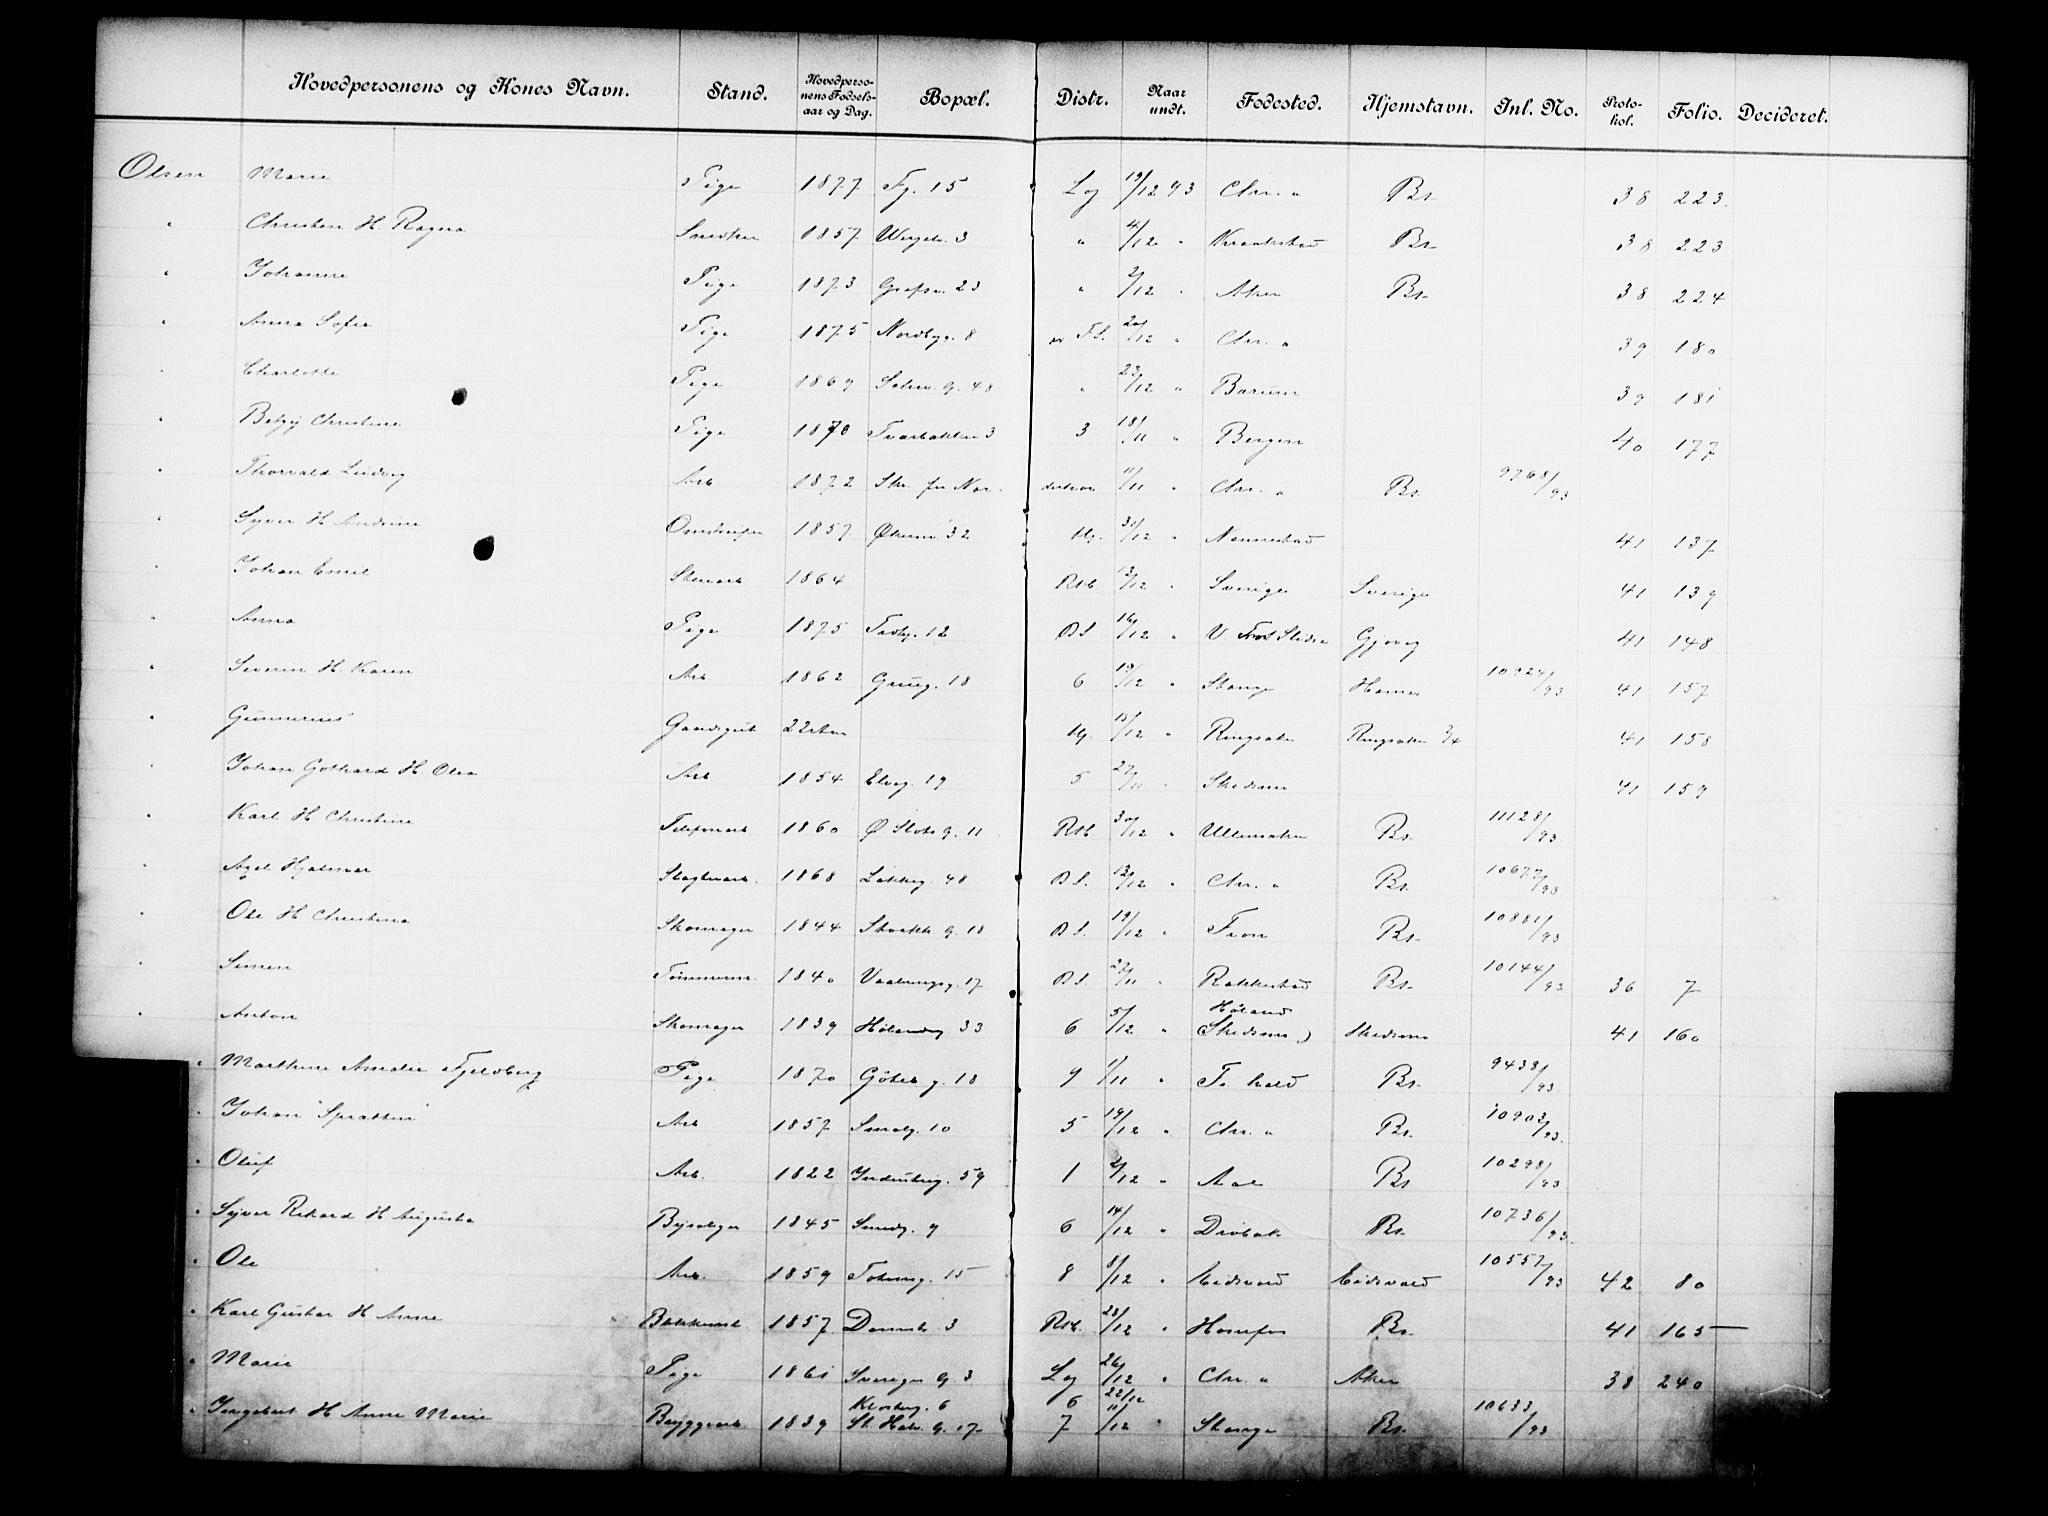 Hovedpersonens og Kones Navn. Stand. Hovedperso-nens Fødsels-aar og Dag. Bopæl. Distr. Naar undt. Fødested. Hjemstavn. Inl. No. Proto-kol. Folio. Decideret.
Olsen Marie Pige 1877 15 Lg 19/12 93 Chr. a Bs. 38 223.
" Christian H. Ragna Snedker 1857 3 " 4/12 " Kraakstad Bs. 38 223
" Johanne Pige 1873 Grefsv. 23 " 2/12 " Aker Bs. 38 224
" Anna Sofie Pige 1875 Nordbyg. 8 F.S. 20/12 " Chr. a 39 180
" Charlotte Pige 1869 48 " 23/12 " Bærum 39 181
" Betzy Christine Pige 1870 3 3 18/11 " Bergen 40 177
" Thorvald Ludvig Arb 1872 11/11 " Chr. a Bs. 9768/93
" Syver H. Andrine 1857 32 31/12 " Nannestad 41 137
" Johan Emil Stenarb 1864 Rst. 12/12 " Sverige Sverige 41 139
" Anna Pige 1875 12 B S. 16/12 " V. Slidre Gjøvig 41 148
" Severin H. Karen Arb 1862 18 6 19/12 " Stange Hamar 10924/93 41 157
" Gunnerius Gaardsgut 22 Aar 15/12 " Ringsaker Ringsaker 3/4 41 158
" Johan Gothard H. Olea Arb 1854 Elveg. 19 5 27/11 " Skedsmo 41 159
" Karl H. Christine Telefonarb 1860 Ø. Slots g. 11 Rst. 30/12 " Ullensaker Bs. 11128/93
" Axel Hjalmar Slagterarb. 1868 Lakkeg. 48 B S. 12/12 " Chr. a Bs. 10677/93
" Ole H. Christina Skomager 1844 18 B S. 19/12 " Fron Bs. 10881/93
" Simen Tømmerm. 1840 Vaalerengg. 17 B S. 27/11 " Rakkestad Bs. 10144/93 36 7
" Anton Skomager 1839 Hølandsg 33 6 5/12 " Høland (Skedsmo) Skedsmo 41 160
" Marthine Amalie Fjeldberg Pige 1870 Göteb. g. 18 9 1/11 " Fr. hald Bs. 9438/93
" Johan "Sprætten" Arb 1857 Smalg. 10 5 19/12 " Chr. a Bs. 10903/93.
" Oluf Arb. 1822 Industrig. 59 1 2/12 " Aal Bs 10298/93.
" Syver Rikard H. Augusta Bysælger 1845 Smedg. 9 6 14/12 " Drøbak Bs. 10736/93.
" Ole Arb. 1859 Tøiensg. 15 8 8/12 " Eidsvold Eidsvold 10557/93 42 80
" Karl Gustav H. Anne 1857 Danmk. 3 Rst. 28/12 " Hønefos Bs. 41 165
" Marie Pige 1861 Sveriges g. 3 Lg 26/12 " Chr. a Aker 38 240
Klosterg. 6 6 22/12
" Ingebret H. Anne Marie Bryggearb 1839 St. Halv. g. 17 7 11/12 " Stange Bs. 10633/93